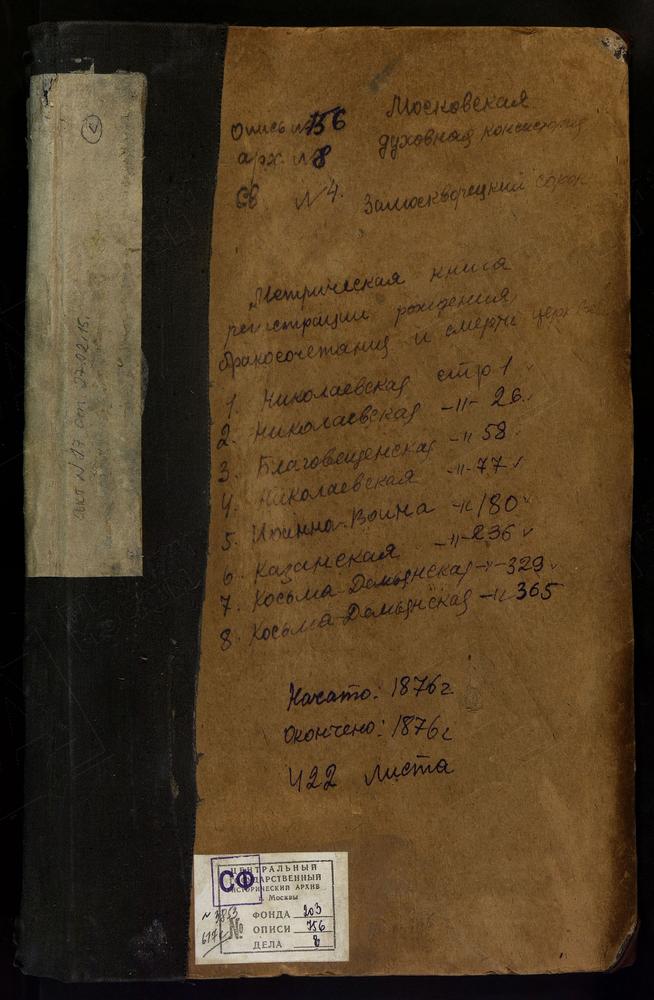 Опись № 756 Московская
арх. № 8 духовная консистория
св № 4. Замоскворецкий сорок
Метрическая книга
регистрации рождения,
бракосочетания и смерти церквей
1. Николаевская стр 1
2. Николаевская -"- 26.
3. Благовещенская -"- 58
4. Николаевская -"- 77
5. Иоанна-Воина -"- 180
6. Казанская -"- 236
7. Косьма-Демьянская -"- 329
8. Косьма-Демьянская -"- 365
Начато: 1876 г
окончено: 1876 г
422 листа
акт № 17 от 27.02.15.
СФ
ЦЕНТРАЛЬНЫЙ
ГОСУДАРСТВЕННЫЙ
ИСТОРИЧЕСКИЙ АРХИВ
г. Москвы
№ ФОНДА 203
ОПИСИ 756
ДЕЛА 8